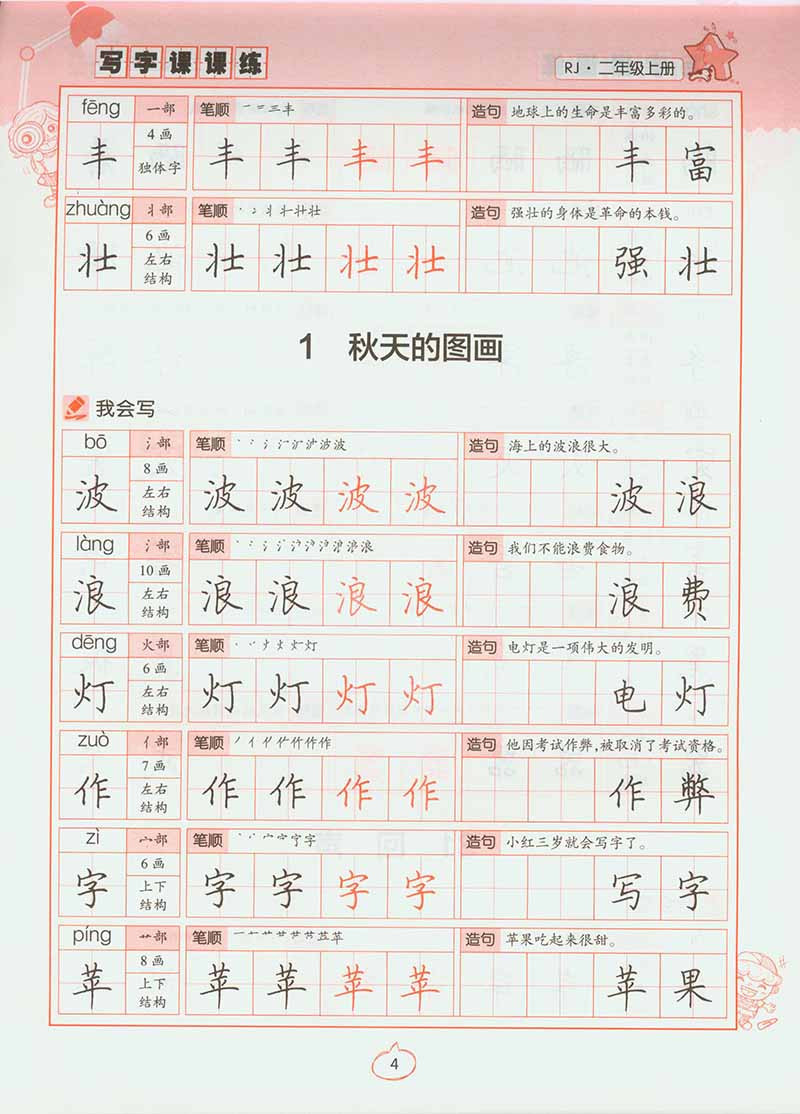 写字课课练
RJ·二年级上册
fēng 一部 笔顺 造句 地球上的生命是丰富多彩的。
丰 4画 独体字 丰 丰 丰 丰 丰 富
zhuàng 丬部 笔顺 造句 强壮的身体是革命的本钱。
壮 6画 左右结构 壮 壮 壮 壮 强 壮
1 秋天的图画
我会写
bō 氵部 笔顺 造句 海上的波浪很大。
波 8画 左右结构 波 波 波 波 波 浪
làng 氵部 笔顺 造句 我们不能浪费食物。
浪 10画 左右结构 浪 浪 浪 浪 浪 费
dēng 火部 笔顺 造句 电灯是一项伟大的发明。
灯 6画 左右结构 灯 灯 灯 灯 电 灯
zuò 亻部 笔顺 造句 他因考试作弊,被取消了考试资格。
作 7画 左右结构 作 作 作 作 作 弊
zì 宀部 笔顺 造句 小红三岁就会写字了。
字 6画 上下结构 字 字 字 字 写 字
píng 艹部 笔顺 造句 苹果吃起来很甜。
苹 8画 上下结构 苹 苹 苹 苹 苹 果
4